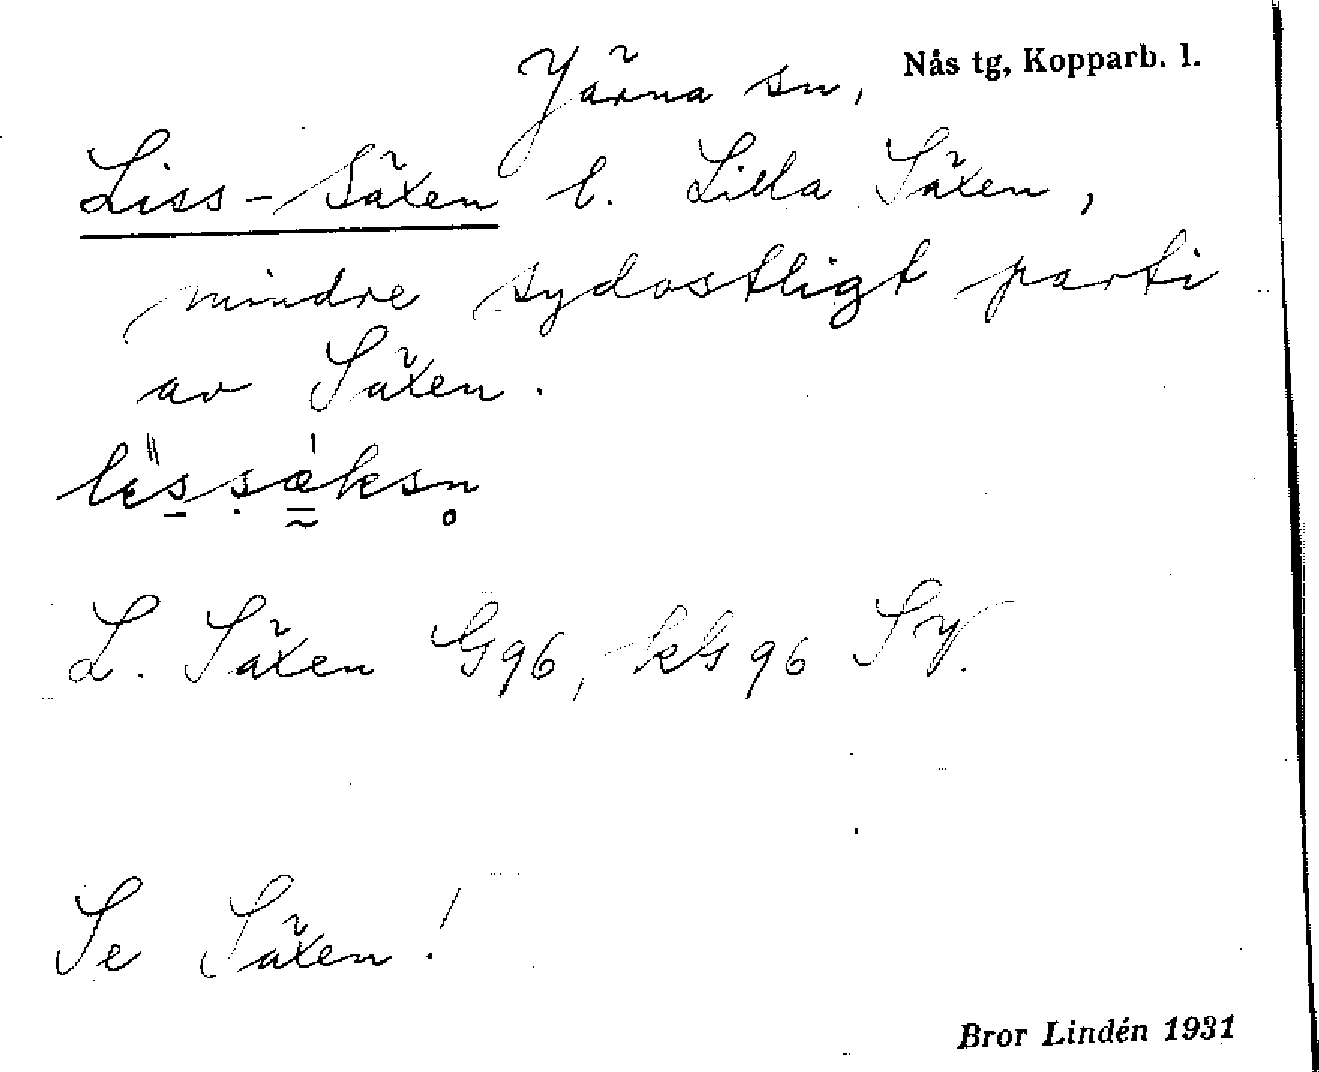 Järna sn, Nås tg, Kopparb. l.
Liss-Säxen l. Lilla Säxen,
mindre sydostligt parti
av Säxen.
L. Säxen G96, kG 96 Sy.
Se Säxen!
Bror Lindén 1931